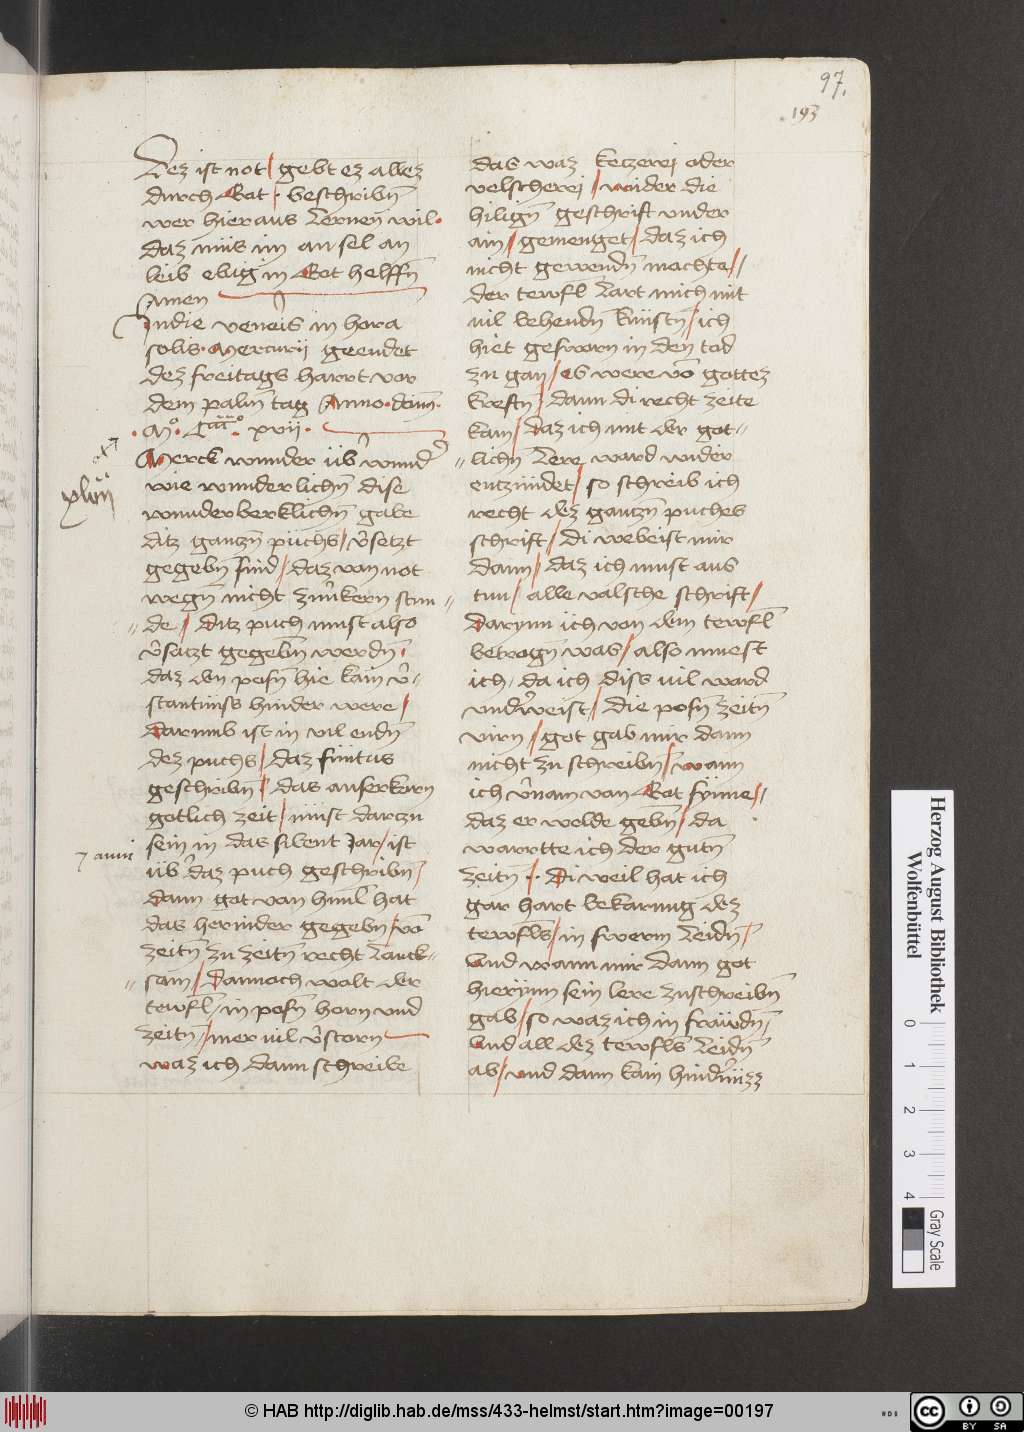 97.
193
Dez ist not / gebt ez allez
durch Got · beschribn̄
wer hieraus lernen wil ·
daz müs im an sel an
leib ebig in Got helffn̄
Amen
In die veneris in hora
solis · Mercurij geendet
dez freitags harrt vor
dem palm̄ tag Anno · dom̄ ·
xvij ·
Merck wunder üb wund
wie wunderlichn̄ dise
wunderberklichn̄ gabe
ditz ganzn̄ puchs / v̾setzt
gegebn̄ sind / daz von not
wegn̄ nicht
de / Ditz puch must also
v̾satzt gegebn̄ werdn̄ ·
daz den posn̄ hie kain v̾-
stantnuss hinder were /
darumb ist in vil endn̄
dez puchs / daz
geschribn̄ / das auserkorn
gotlich zeit / müst darczu
sein in das sibent Jar / ist
7 anni
üb̾ daz puch geschribn̄ /
dann got von himl̄ hat
das herinder gegebn̄ / vō
zeitn̄ zu zeitn̄ recht lanck=
sam / Dannoch wolt der
tewfl̄ / in posn̄ horn vnd
zeitn̄ / mer vil v̾storn
waz ich dann schreibe
das waz ketzerej oder
velscherej / wider die
hilign̄ geschrift vnder
ain / gemenget / daz ich
nicht gewendn̄ mochte //
der tewfl lart mich mit
vil behendn̄ künstn̄ / ich
hiet gesworn in den tod
zu gan / es were vō gottez
kreftn̄ / dann di recht zeite
kam / daz ich mit der got=
lichn̄ lere ward wider
entzündet / so schreib ich
recht dez ganczn̄ puches
schrift / di webeist mir
dann / daz ich must aus
tun / alle valsche schrift /
Darynn ich von dem tewfl̄
betrogn̄ was / also muest
ich / da ich diss vil ward
vnd̾weist / die posn̄ zeitn̄
virn / got gab mir dann
nicht zu schreibn̄ / wann
ich v̾nam von Got synne //
daz er wolde gebn̄ / da
warotte ich der gutn̄
zeitn̄ / · Di weil hat ich
gar hart bekarung dez
tewfl̄s / in swerm leidn̄ /
Vnd wann mir dann got
hierynn sein lere zuschreibn̄
gab / so waz ich in fräwdn̄ /
Vnd all dez tewfls leidn̄
ab / vnd dann kain hind̾nüzz
Herzog August Bibliothek
Wolfenbüttel
0 1 2 3 4
Gray Scale
© HAB http://diglib.hab.de/mss/433-helmst/start.htm?image=00197
HDB
cc BY SA